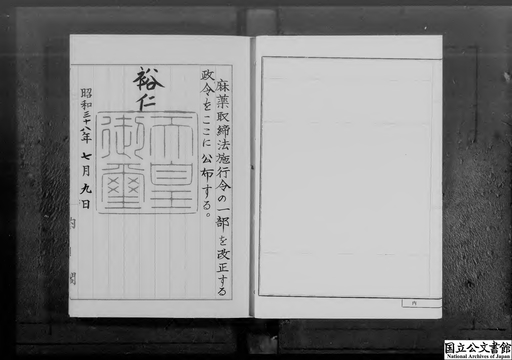 麻薬取締法施行令の一部を改正する
政令をここに公布する。
裕仁
天皇
御璽
昭和三十八年 七月 九日
内閣
内
国立公文書館
National Archives of Japan